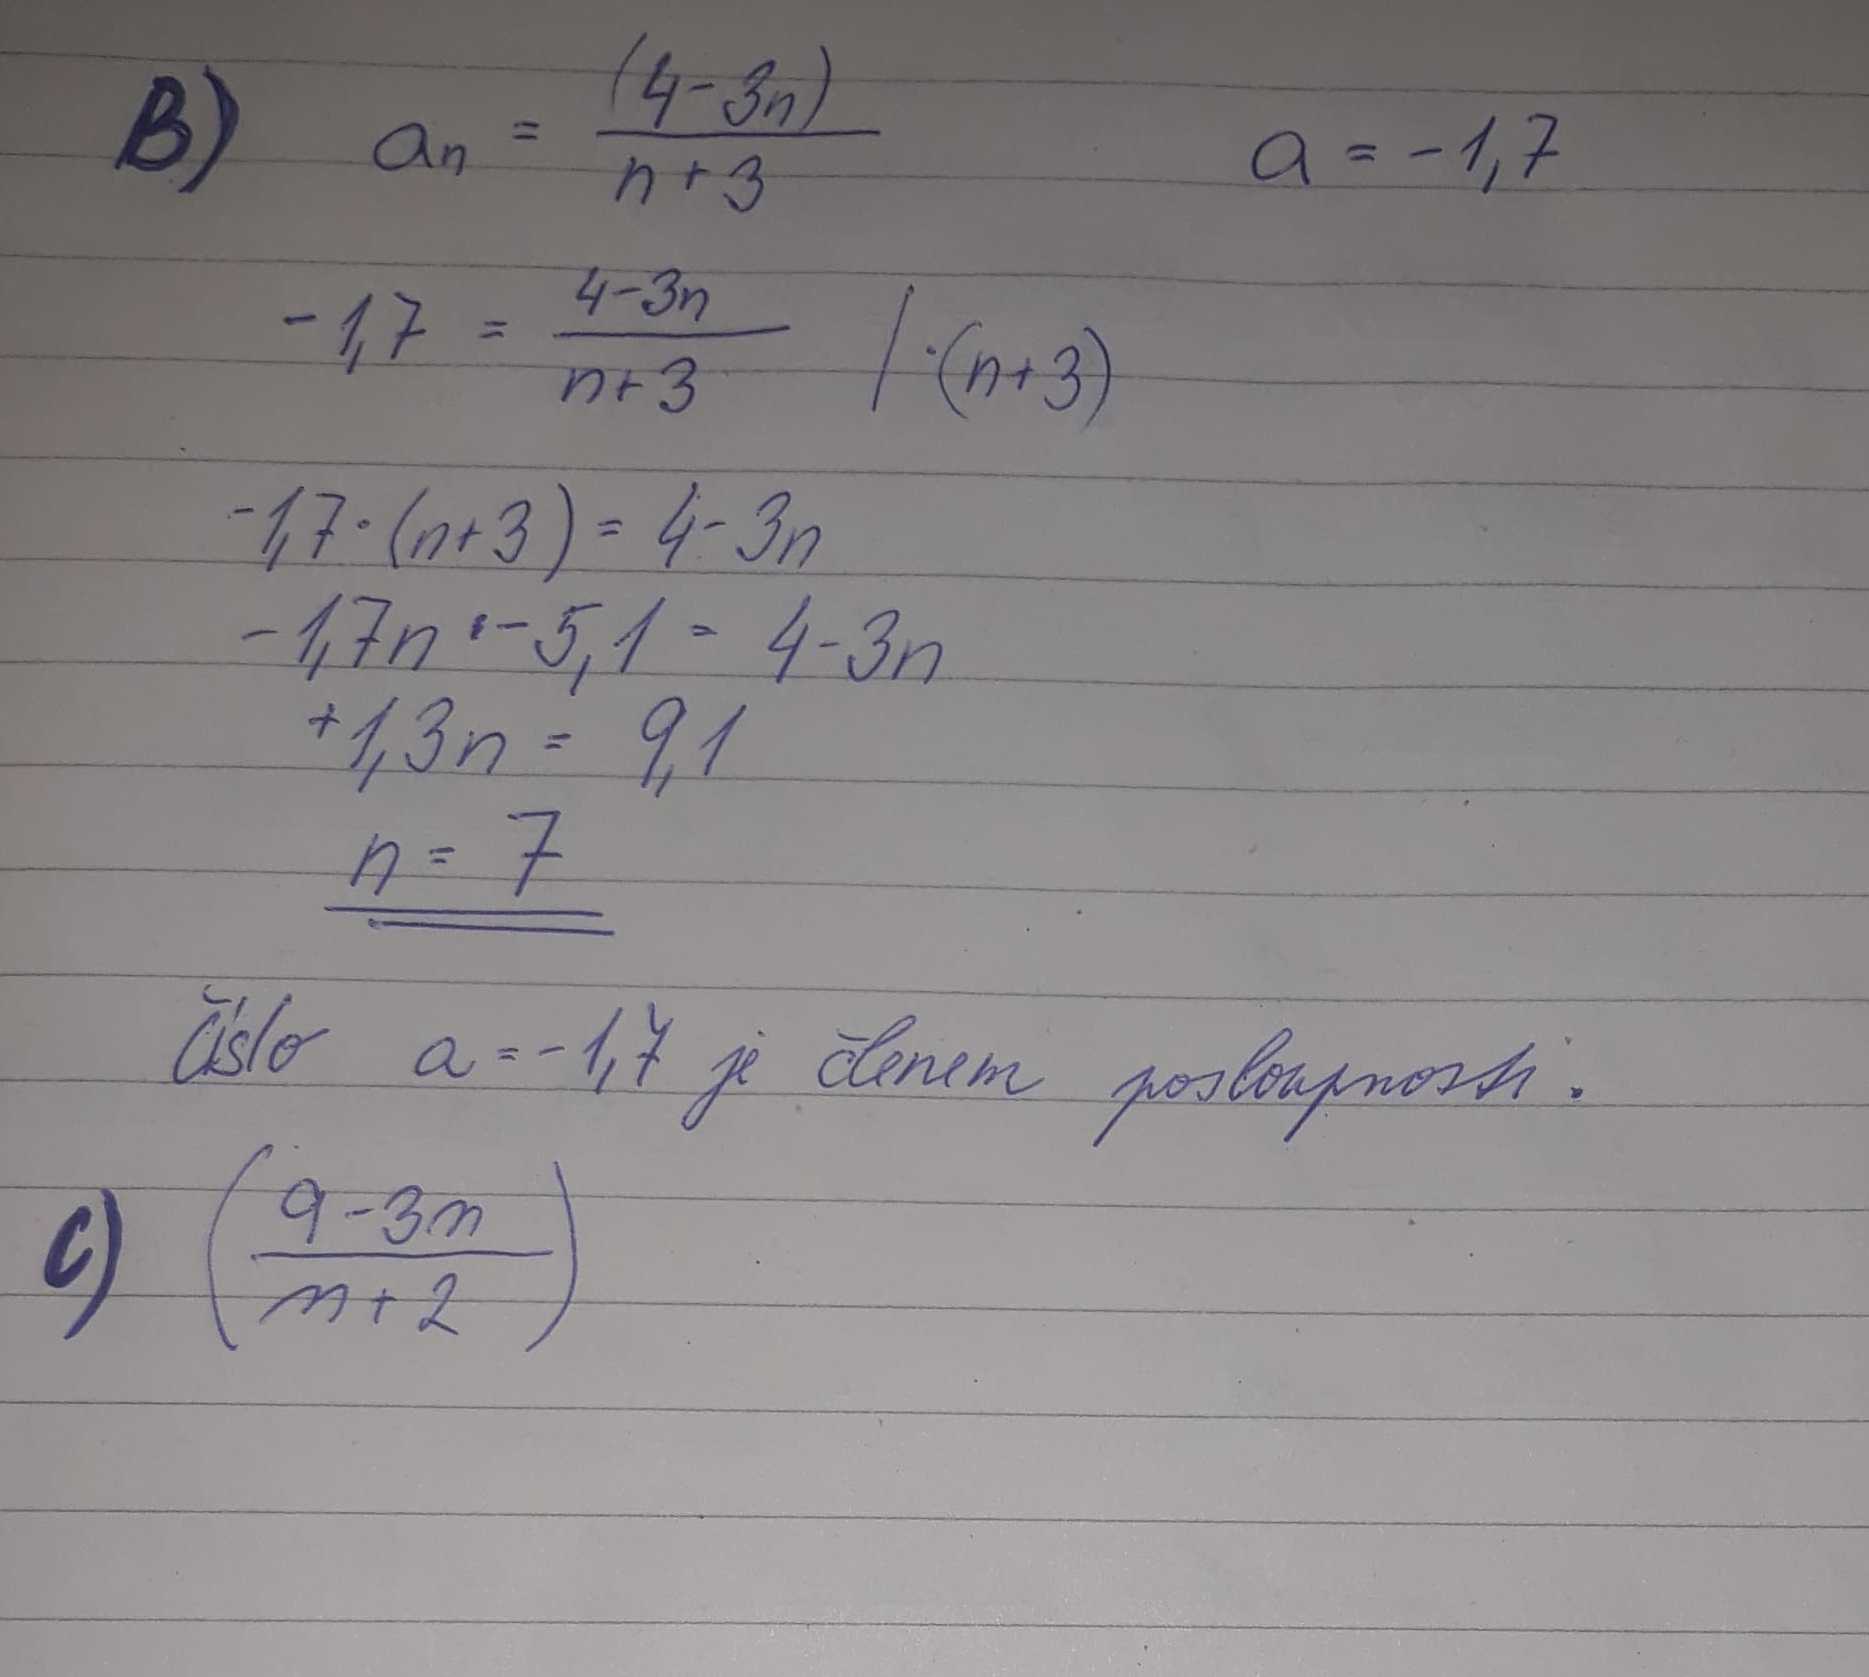 B) aₙ = (4-3n)/n+3 a = -1,7
-1,7 = 4-3n/n+3 /·(n+3)
-1,7·(n+3) = 4-3n
-1,7n -5,1 = 4-3n
+1,3n = 9,1
n = 7
Číslo a = -1,7 je členem posloupnosti.
C) (9-3n/n+2)